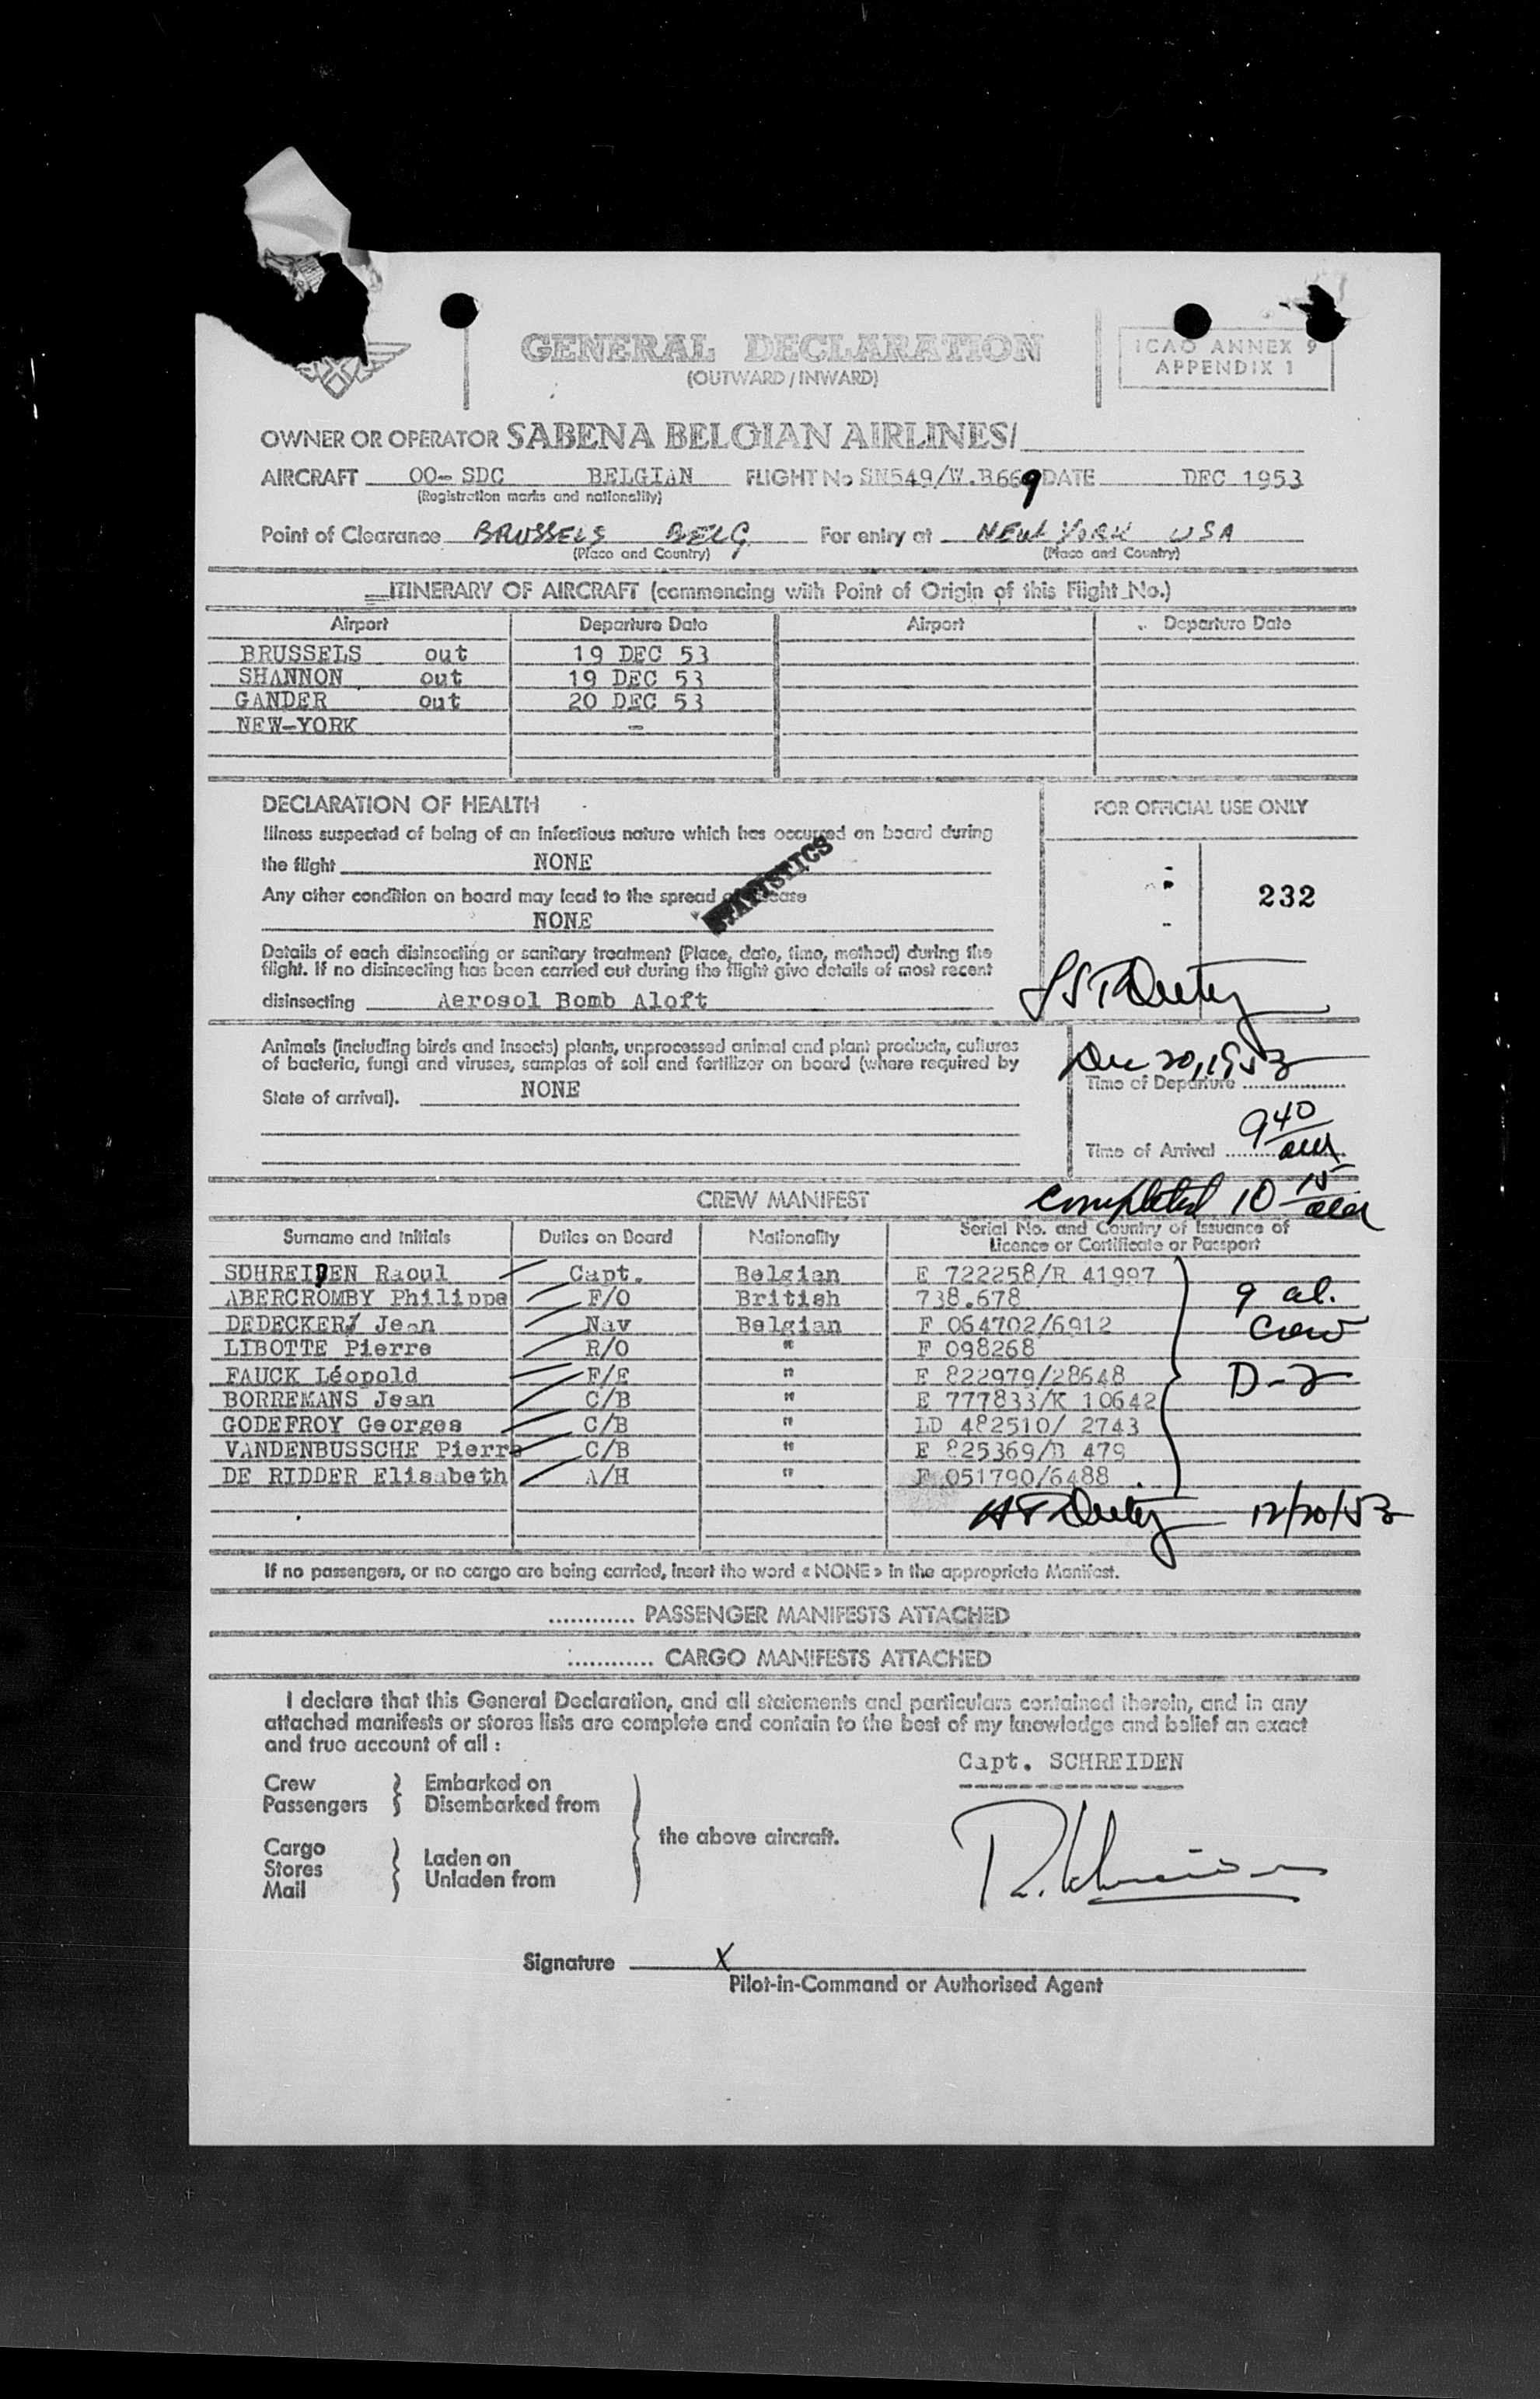 GENERAL DECLARATION
(OUTWARD / INWARD)
ICAO ANNEX 9
APPENDIX 1
OWNER OR OPERATOR SABENA BELGIAN AIRLINES/
AIRCRAFT OO- SDC BELGIAN FLIGHT No SN549/W.B669 DATE DEC 1953
(Registration marks and nationality)
Point of Clearance BRUSSELS BELG For entry at NEW YORK USA
(Place and Country) (Place and Country)
ITINERARY OF AIRCRAFT (commencing with Point of Origin of this Flight No.)
Airport Departure Date Airport Departure Date
BRUSSELS out 19 DEC 53
SHANNON out 19 DEC 53
GANDER out 20 DEC 53
NEW-YORK -
DECLARATION OF HEALTH
FOR OFFICIAL USE ONLY
Illness suspected of being of an infectious nature which has occurred on board during
the flight NONE
STATISTICS
232
Any other condition on board may lead to the spread of disease
NONE
Details of each disinsecting or sanitary treatment (Place, date, time, method) during the
flight. If no disinsecting has been carried out during the flight give details of most recent
disinsecting Aerosol Bomb Aloft
Animals (including birds and insects) plants, unprocessed animal and plant products, cultures
of bacteria, fungi and viruses, samples of soil and fertilizer on board (where required by
State of arrival). NONE
Dec 20, 1953
Time of Departure
Time of Arrival 9 40 am
completed 10 15 am
CREW MANIFEST
Surname and Initials Duties on Board Nationality Serial No. and Country of Issuance of
Licence or Certificate or Passport
SCHREIDEN Raoul Capt. Belgian E 722258/R 41997
ABERCROMBY Philippe F/O British 738.678
DEDECKER Jean Nav Belgian F 064702/6912
LIBOTTE Pierre R/O " F 098268
FAUCK Léopold F/E " E 822979/28648
BORREMANS Jean C/B " E 777833/K 10642
GODEFROY Georges C/B " LD 482510/ 2743
VANDENBUSSCHE Pierre C/B " E 825369/B 479
DE RIDDER Elisabeth A/H " F 051790/6488
9 al.
Crew
D-2
12/20/53
If no passengers, or no cargo are being carried, insert the word « NONE » in the appropriate Manifest.
............ PASSENGER MANIFESTS ATTACHED
............ CARGO MANIFESTS ATTACHED
I declare that this General Declaration, and all statements and particulars contained therein, and in any
attached manifests or stores lists are complete and contain to the best of my knowledge and belief an exact
and true account of all :
Capt. SCHREIDEN
Crew
Passengers
Embarked on
Disembarked from
the above aircraft.
Cargo
Stores
Mail
Laden on
Unladen from
Signature X
Pilot-in-Command or Authorised Agent